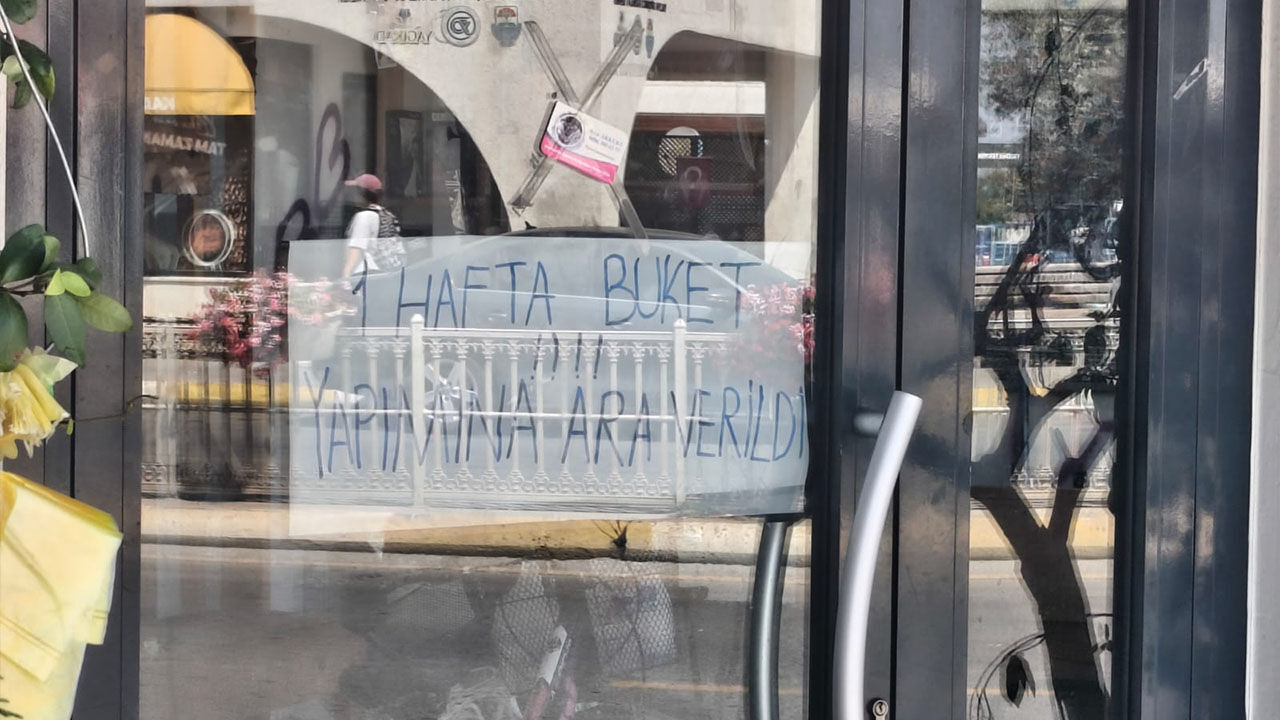 1 HAFTA BUKET
!!!!
YAPIMINA ARA VERİLDİ